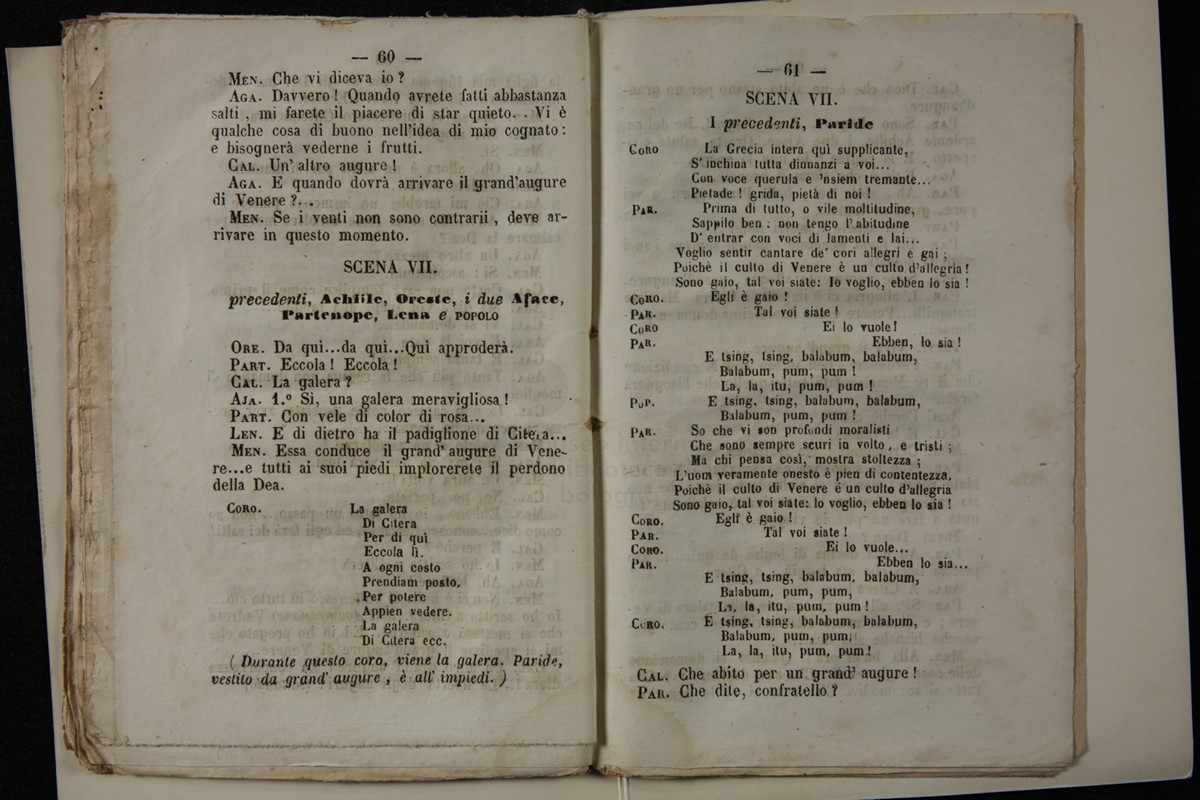 — 60 —
MEN. Che vi diceva io?
AGA. Davvero! Quando avrete fatti abbastanza
salti, mi farete il piacere di star quieto. . Vi è
qualche cosa di buono nell'idea di mio cognato:
e bisognerà vederne i frutti.
CAL. Un' altro augure!
AGA. E quando dovrà arrivare il grand'augure
di Venere?...
MEN. Se i venti non sono contrarii, deve ar-
rivare in questo momento.
SCENA VII.
precedenti, Achille, Oreste, i due Aface,
Partenope, Lena e POPOLO
ORE. Da quì...da quì...Quì approderà.
PART. Eccola! Eccola!
CAL. La galera?
AJA. 1.° Sì, una galera meravigliosa!
PART. Con vele di color di rosa...
LEN. E di dietro ha il padiglione di Citera...
MEN. Essa conduce il grand' augure di Vene-
re...e tutti ai suoi piedi implorerete il perdono
della Dea.
CORO. La galera
Di Citera
Per di quì
Eccola lì.
A ogni costo
Prendiam posto,
Per potere
Appien vedere.
La galera
Di Citera ecc.
( Durante questo coro, viene la galera. Paride,
vestito da grand' augure, è all' impiedi. )
— 61 —
SCENA VII.
I precedenti, Paride
CORO La Grecia intera quì supplicante,
S' inchina tutta dinnanzi a voi...
Con voce querula e 'nsiem tremante...
Pietade! grida, pietà di noi!
PAR. Prima di tutto, o vile moltitudine,
Sappilo ben: non tengo l' abitudine
D' entrar con voci di lamenti e lai...
Voglio sentir cantare de' cori allegri e gai;
Poichè il culto di Venere è un culto d'allegria!
Sono gaio, tal voi siate: lo voglio, ebben lo sia!
CORO. Egli è gaio!
PAR. Tal voi siate!
CORO Ei lo vuole!
PAR. Ebben, lo sia!
E tsing, tsing, balabum, balabum,
Balabum, pum, pum!
La, la, itu, pum, pum!
POP. E tsing, tsing, balabum, balabum,
Balabum, pum, pum!
PAR. So che vi son profondi moralisti
Che sono sempre scuri in volto, e tristi;
Ma chi pensa così, mostra stoltezza;
L'uom veramente onesto è pien di contentezza,
Poichè il culto di Venere è un culto d'allegria
Sono gaio, tal voi siate: lo voglio, ebben lo sia!
CORO. Egli è gaio!
PAR. Tal voi siate!
CORO. Ei lo vuole...
PAR. Ebben lo sia...
E tsing, tsing, balabum, balabum,
Balabum, pum, pum,
La, la, itu, pum, pum!
CORO. E tsing, tsing, balabum, balabum,
Balabum, pum, pum,
La, la, itu, pum, pum!
CAL. Che abito per un grand' augure!
PAR. Che dite, confratello?